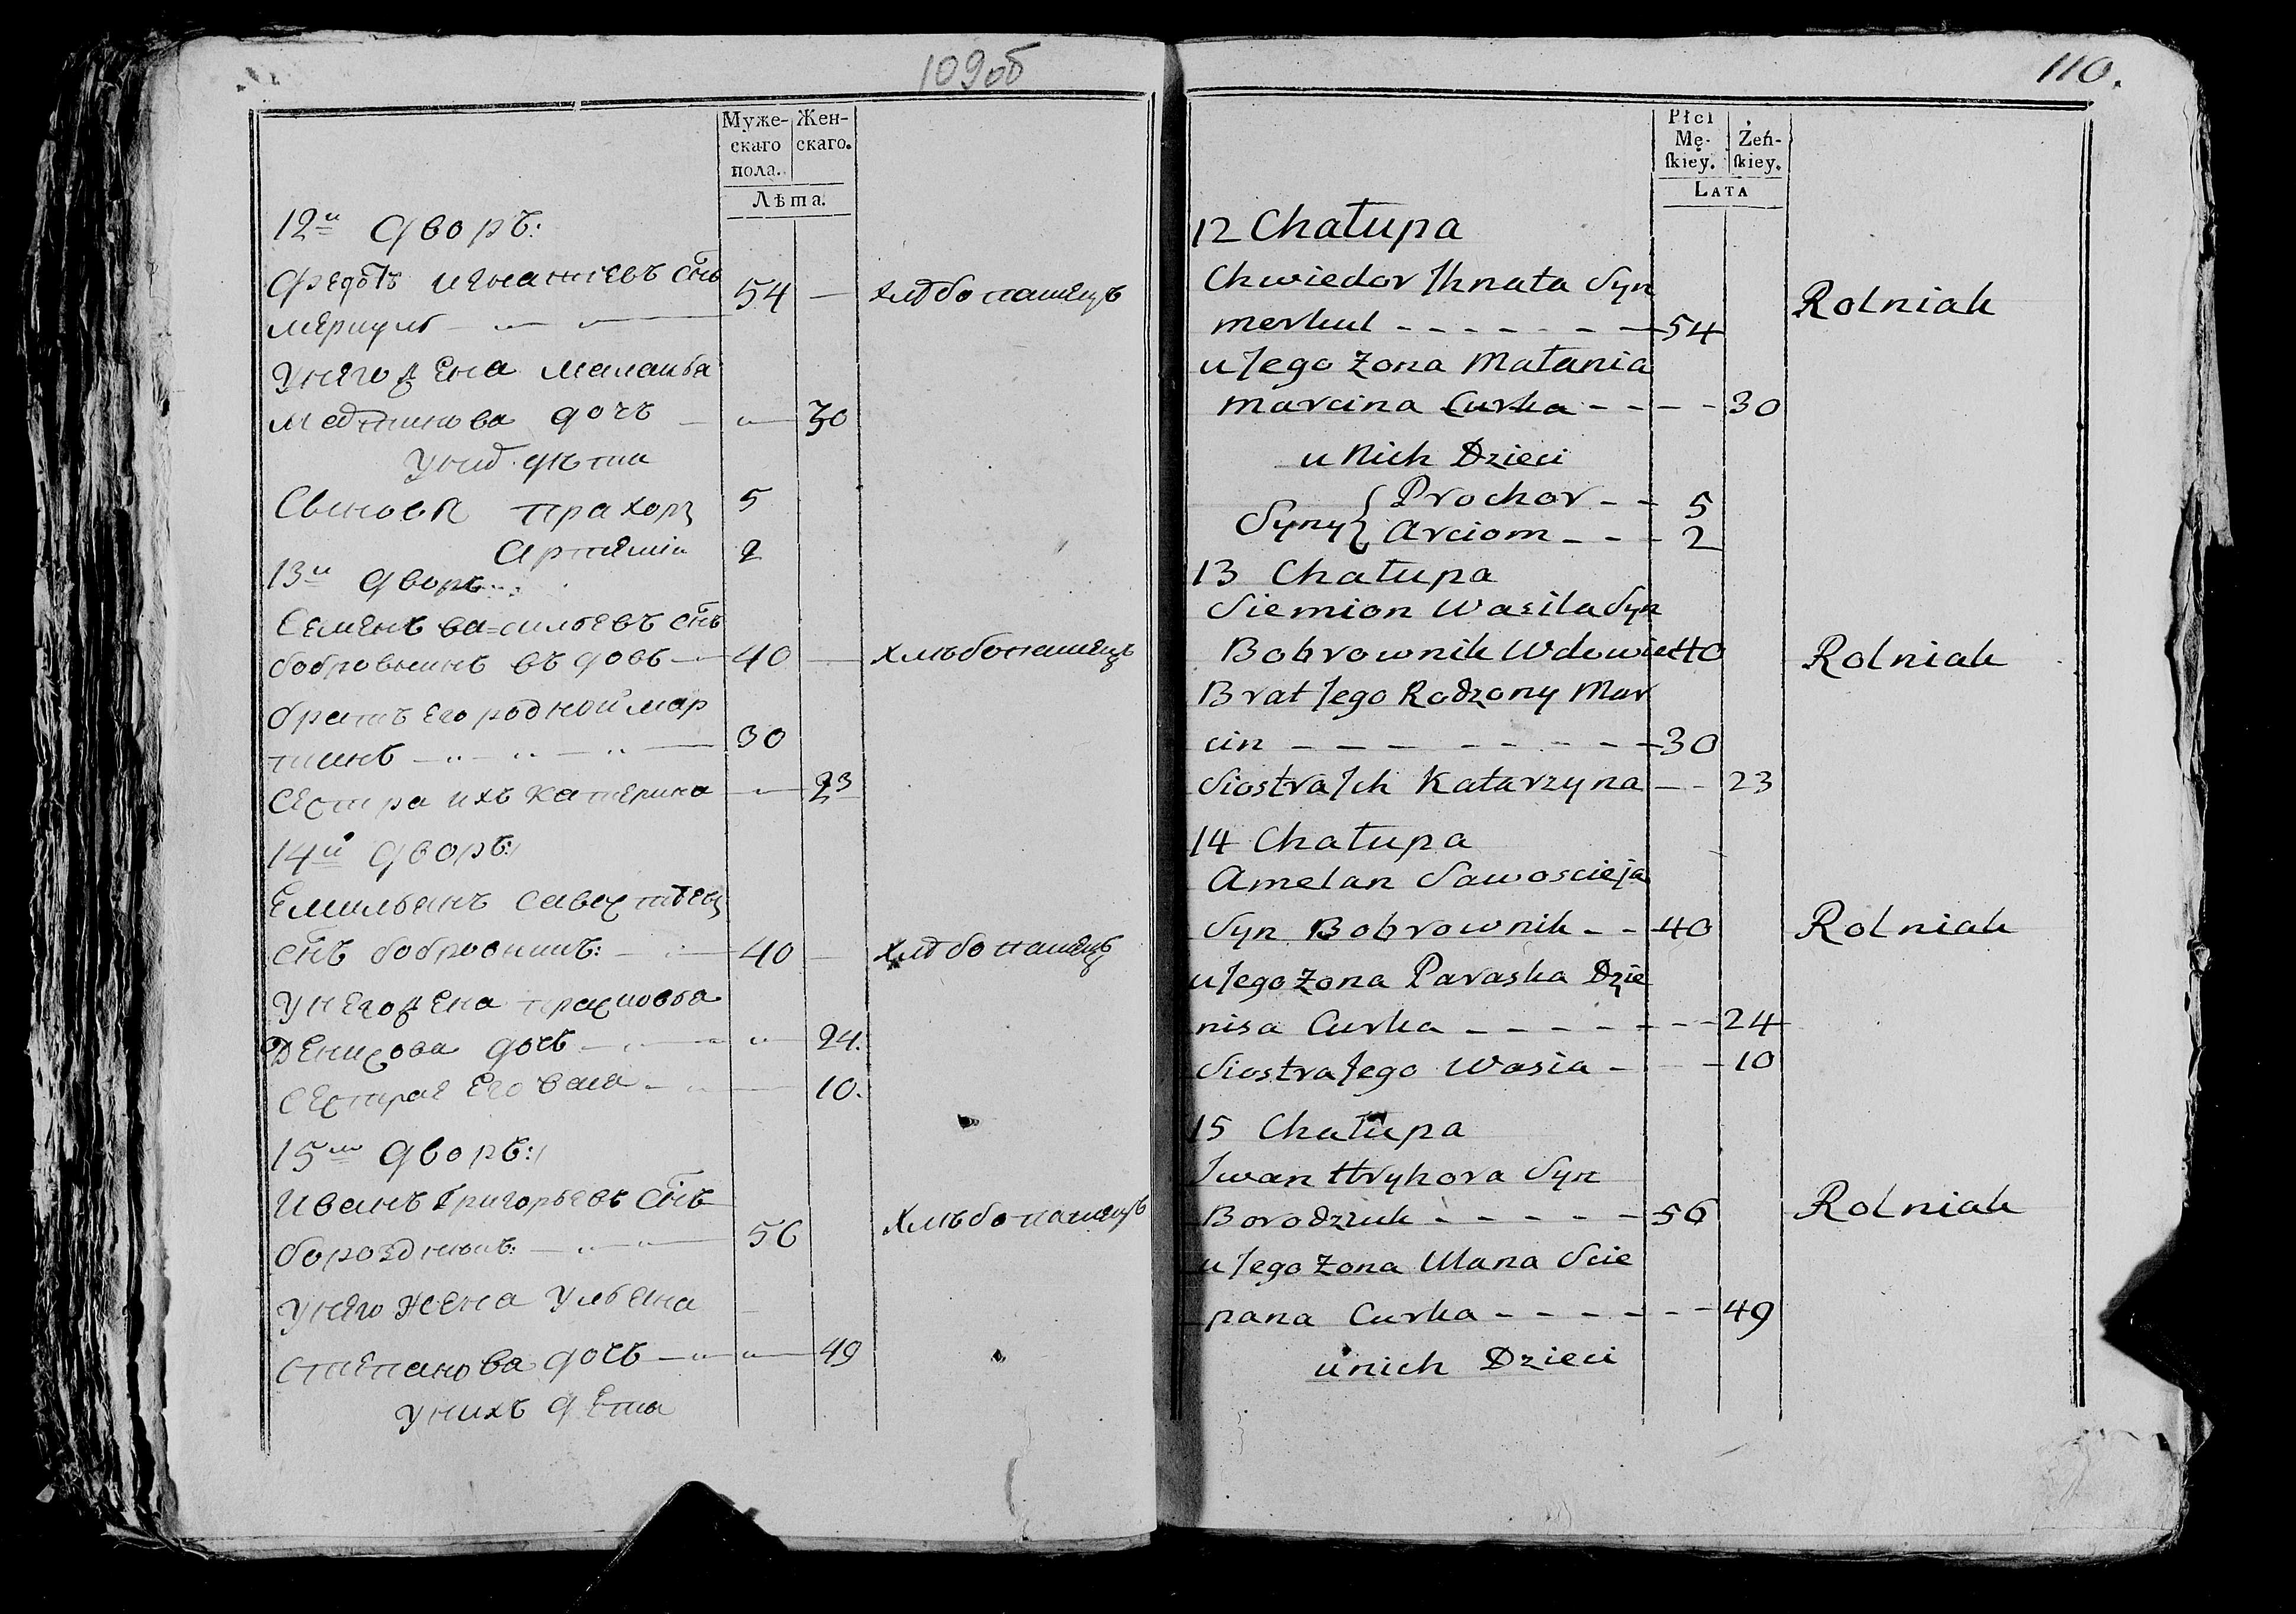 109об
Муже- Жен-
скаго скаго.
пола.
Лѣта.
12й дворъ:
Федотъ игнатьевъ снъ 54 — хлѣбопашецъ
меркулъ
У него жена маланья
мартинова дочь 30
У них дѣти
Сыновя прахоръ 5
Артемiй 2
13й дворъ:
Семенъ васильевъ снъ
бобровникъ вдовъ 40 — хлѣбопашецъ
братъ его родной мар
тинъ 30
Сестра ихъ катерина 23
14й дворъ:
Емильянъ савостьевъ
снъ бобровникъ: 40 — хлѣбопашецъ
У него жена прасковья
Денисова дочь 24.
Сестра его вася 10.
15й дворъ:
Иванъ Григорьевъ снъ
бороздникъ: 56 хлѣбопашецъ
У него жена Ульяна
степанова дочь 49
У нихъ дети
110.
Płci
Mę- Żeń-
skiey. skiey.
LATA
12 Chałupa
Chwiedor Ihnata Syn
merkul - - - - - - 54 Rolnik
u Jego Żona Małania
marcina Curka - - - - 30
u Nich Dzieci
Syny { Prochor - - 5
Arciom - - - 2
13 Chałupa
Siemion Wasila Syn
Bobrownik Wdowiec 40 Rolnik
Brat Jego Rodzony Mar
cin - - - - - - - - 30
Siostra Ich Katarzyna - - 23
14 Chałupa
Amelan Sawoscieja
Syn Bobrownik - - 40 Rolnik
u Jego Żona Paraska Dzie
nisa Curka - - - - - - - 24
Siostra Jego Wasia - - - 10
15 Chałupa
Iwan Hryhora Syn
Borodzuk - - - - - 56 Rolnik
u Jego Żona Ulana Scie
pana Curka - - - - - - - 49
u nich Dzieci